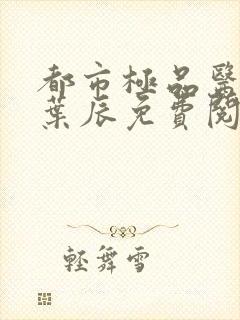 都市極品醫
葉辰免費閱
輕舞雪